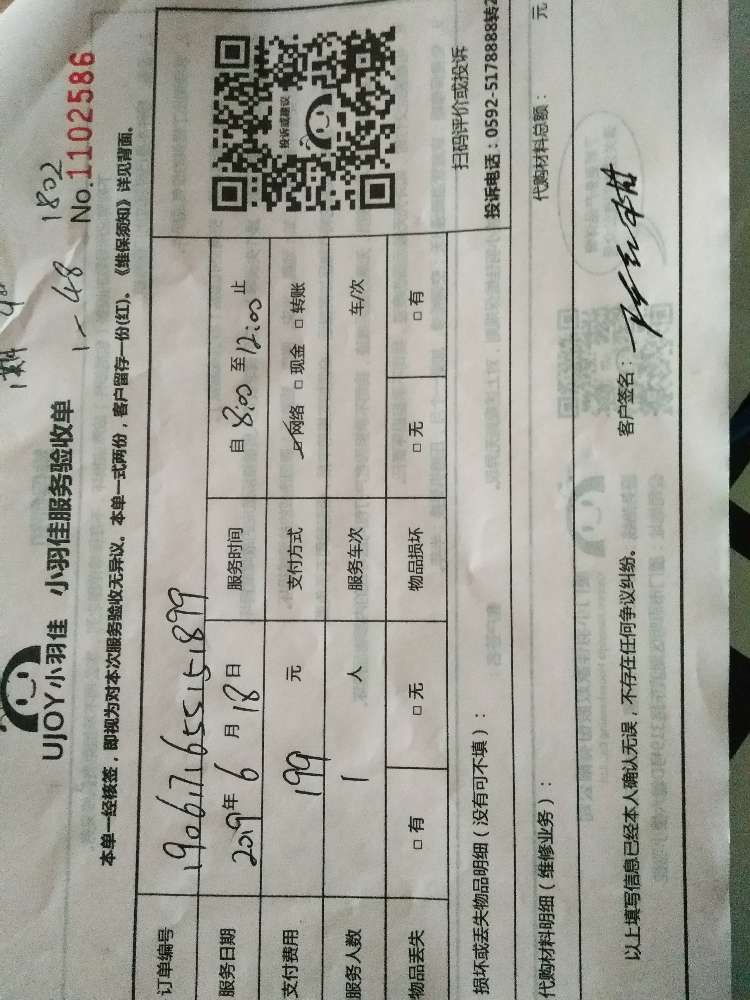 1802
1-48
UJOY小羽佳 小羽佳服务验收单
No.1102586
本单一经核签，即视为对本次服务验收无异议。本单一式两份，客户留存一份(红)。《维保须知》详见背面。
订单编号 1906171655151899
服务日期 2019年6月18日 服务时间 自8:00至12:00止
支付费用 199元 支付方式 ☑网络 □现金 □转账
服务人数 1人 服务车次 车/次
物品丢失 □有 □无 物品损坏 □无 □有
投诉或建议
扫码评价或投诉
投诉电话：0592-5178888转2
损坏或丢失物品明细（没有可不填）：
代购材料明细（维修业务）： 代购材料总额： 元
以上填写信息已经本人确认无误，不存在任何争议纠纷。 客户签名：